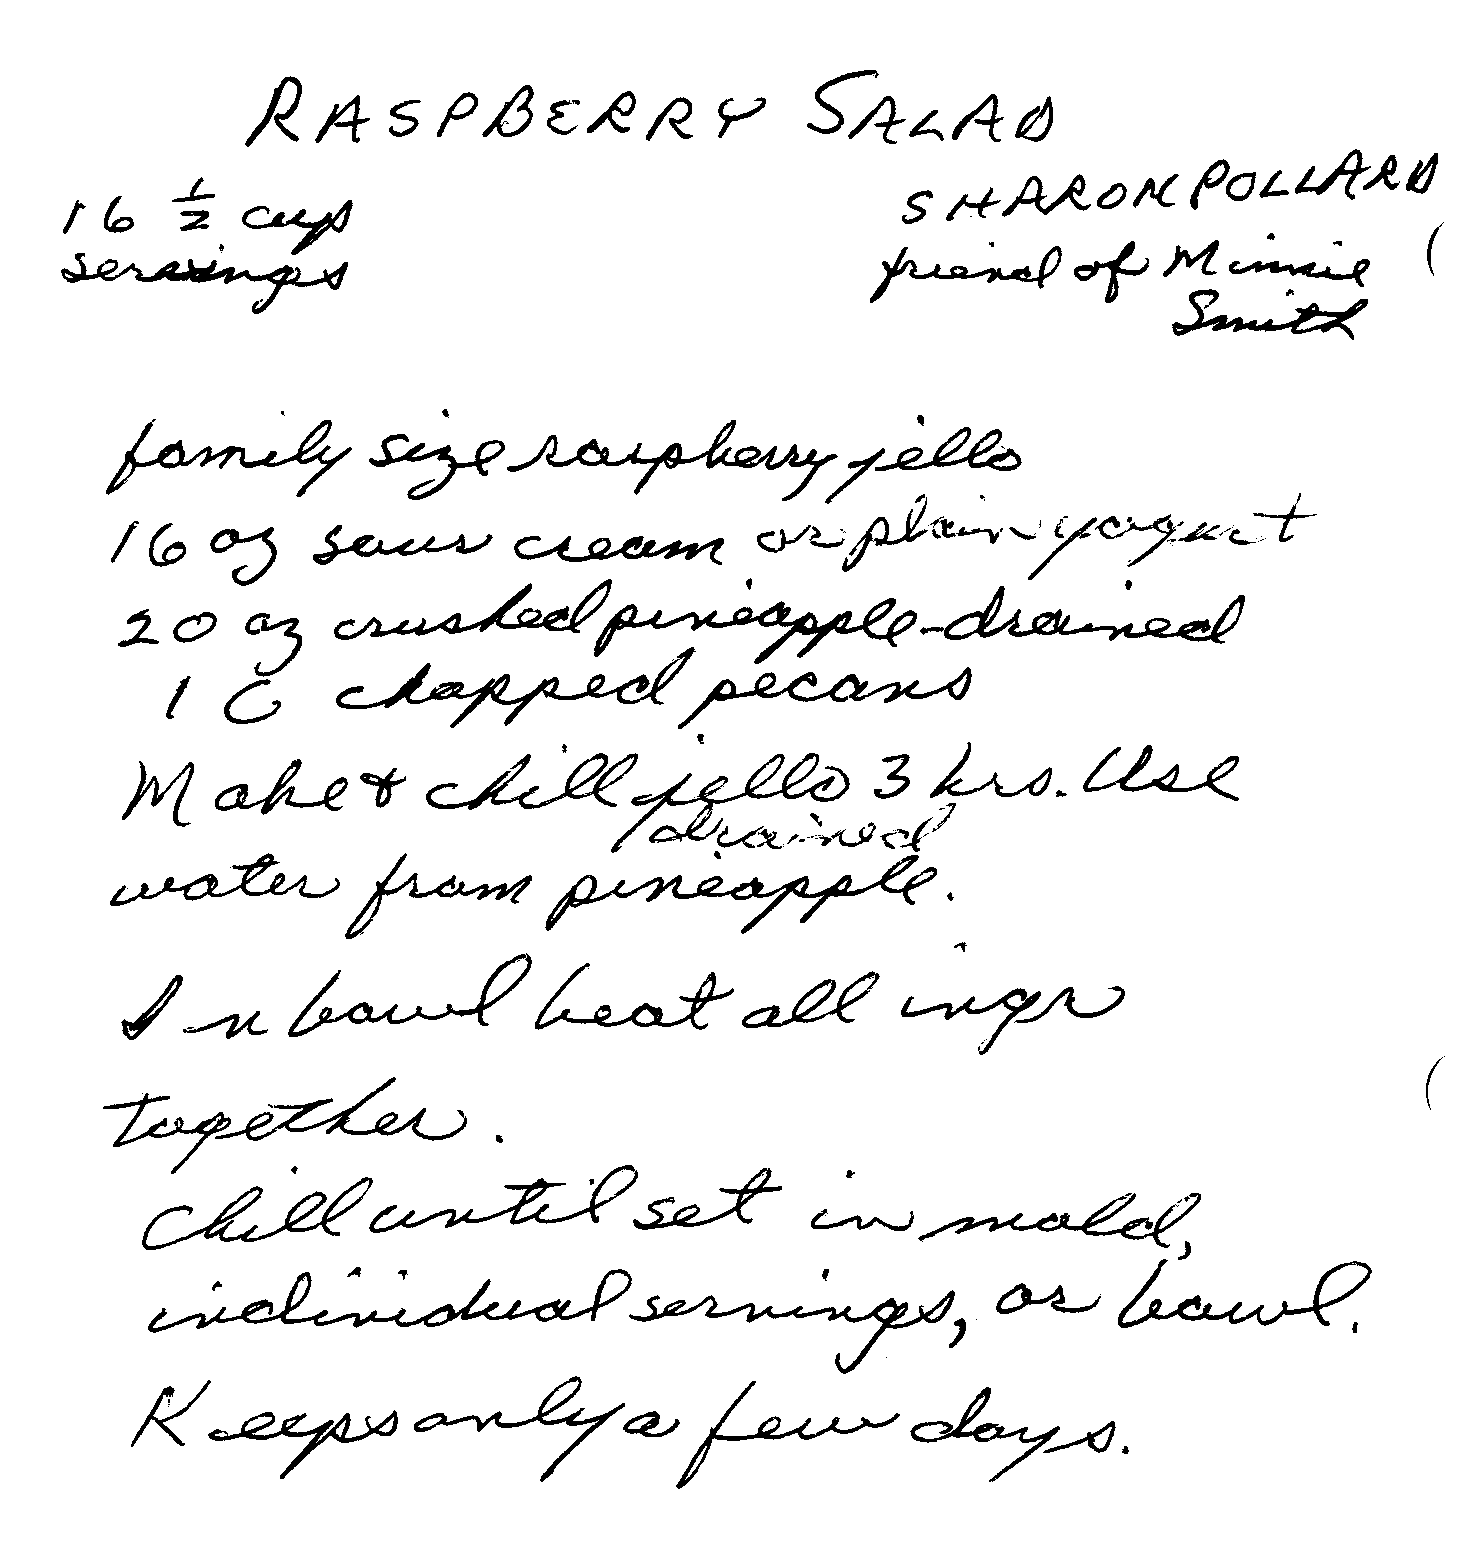 RASPBERRY SALAD
16 1/2 cups
servings
SHARON POLLARD
friend of Minnie
Smith
family size raspberry jello
16 oz sour cream or plain yogurt
20 oz crushed pineapple-drained
1 C chopped pecans
Make & chill jello 3 hrs. Use
drained
water from pineapple.
In bowl beat all ingr
together.
Chill until set in mold,
individual servings, or bowl.
Keeps only a few days.